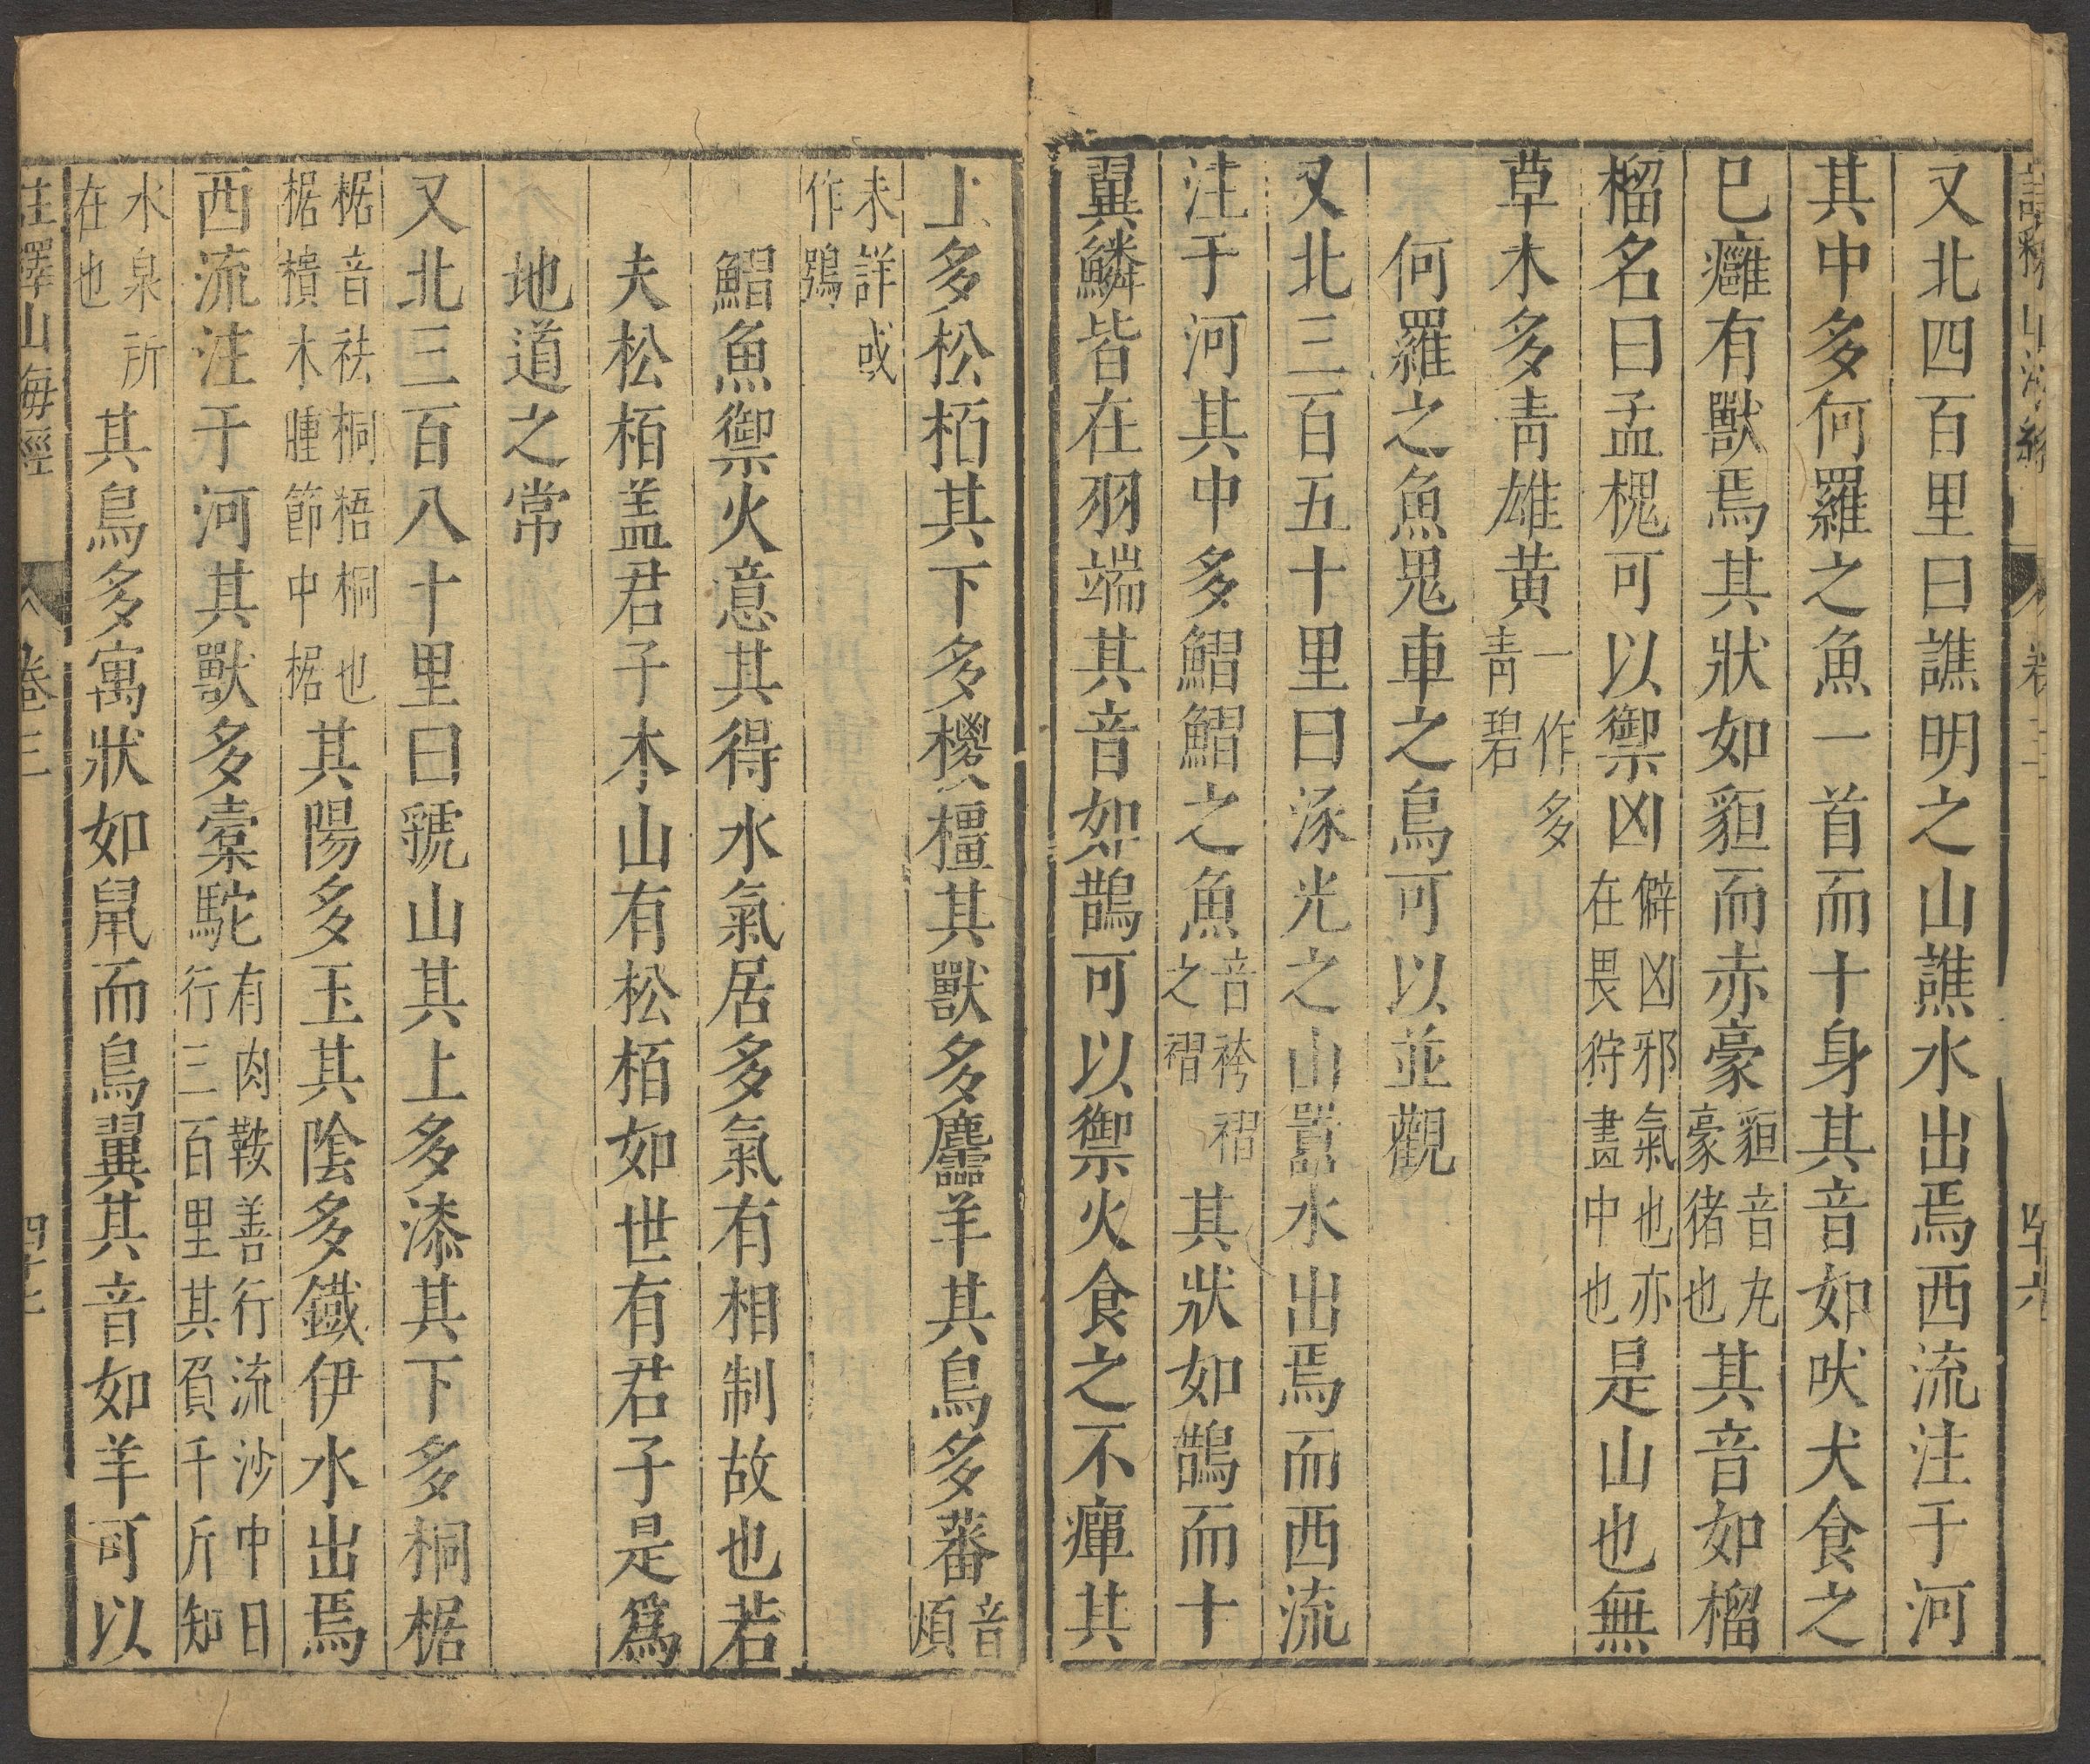 又北四百里曰譙明之山譙水出焉西流注于河
其中多何羅之魚一首而十身其音如吠犬食之
已癰有獸焉其狀如貆而赤豪貆音丸豪猪也其音如榴
榴名曰孟槐可以禦凶僻凶邪氣也亦在畏狩畫中也是山也無
草木多青雄黄一作多青碧
何羅之魚鬼車之鳥可以並觀
又北三百五十里曰涿光之山囂水出焉而西流
注于河其中多鰼鰼之魚音袴褶之褶其狀如鵲而十
翼鱗皆在羽端其音如鵲可以禦火食之不癉其
上多松栢其下多椶橿其獸多麢羊其鳥多蕃音煩
未詳或作鴞
鰼魚禦火意其得水氣居多氣有相制故也若
夫松栢盖君子木山有松栢如世有君子是爲
地道之常
又北三百八十里曰虢山其上多漆其下多桐椐
椐音祛桐梧桐也椐樻木腫節中椐其陽多玉其陰多鐵伊水出焉
西流注于河其獸多橐駝有肉鞍善行流沙中日行三百里其負千斤知
水泉所在也其鳥多寓狀如鼠而鳥翼其音如羊可以
註釋山海經 卷三